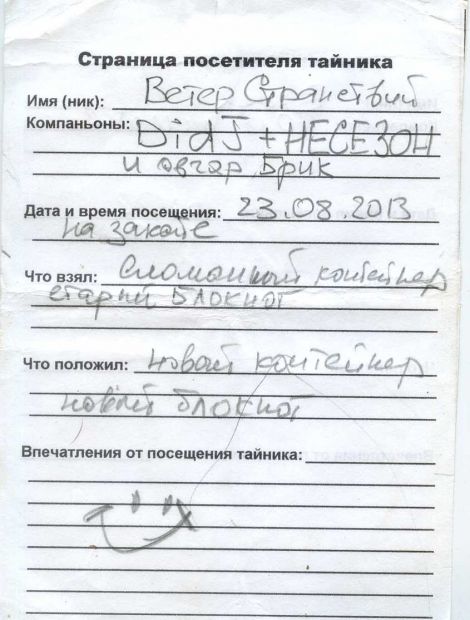 Страница посетителя тайника
Имя (ник): Ветер Странствий
Компаньоны: DidJ + НЕСЕЗОН
и овчар Брик
Дата и время посещения: 23.08.2013
на закате
Что взял: сломанный контейнер
старый блокнот
Что положил: новый контейнер
новый блокнот
Впечатления от посещения тайника: